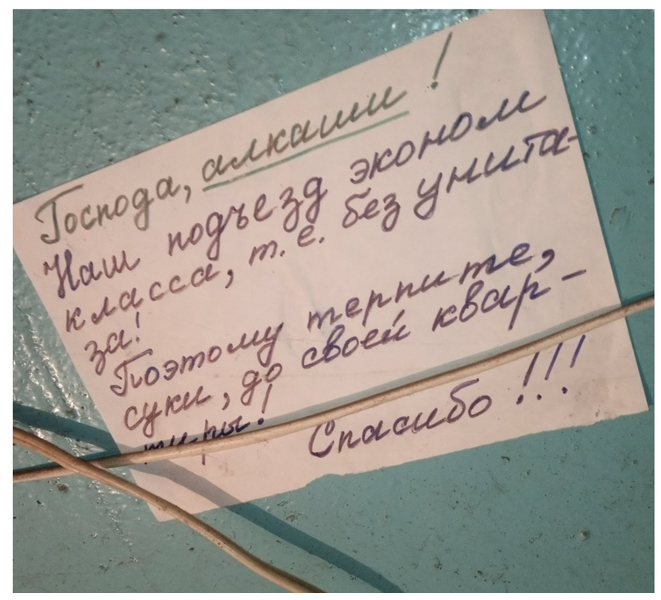 Господа, алкаши!
Наш подъезд эконом
класса, т.е. без унита-
за!
Поэтому терпите,
суки, до своей квар-
тиры!
Спасибо!!!